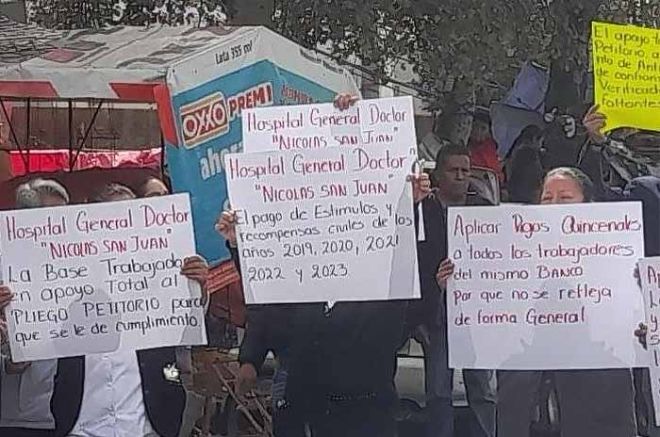 Lata 355 ml
OXXO PREMI
ahor
El apoyo t
Petitorio, a
de confian
Verificad
faltantes
Hospital General Doctor
"NICOLAS SAN JUAN"
Hospital General Doctor
"NICOLAS SAN JUAN"
El pago de Estimulos y
recompensas civiles de los
años 2019, 2020, 2021
2022 y 2023
Hospital General Doctor
"NICOLAS SAN JUAN"
La Base Trabajado
en apoyo Total al
"PLIEGO PETITORIO para
que se le de cumplimiento
Aplicar Pagos Quincenales
a todos los trabajadores
del mismo BANCO
Por que no se refleja
de forma General